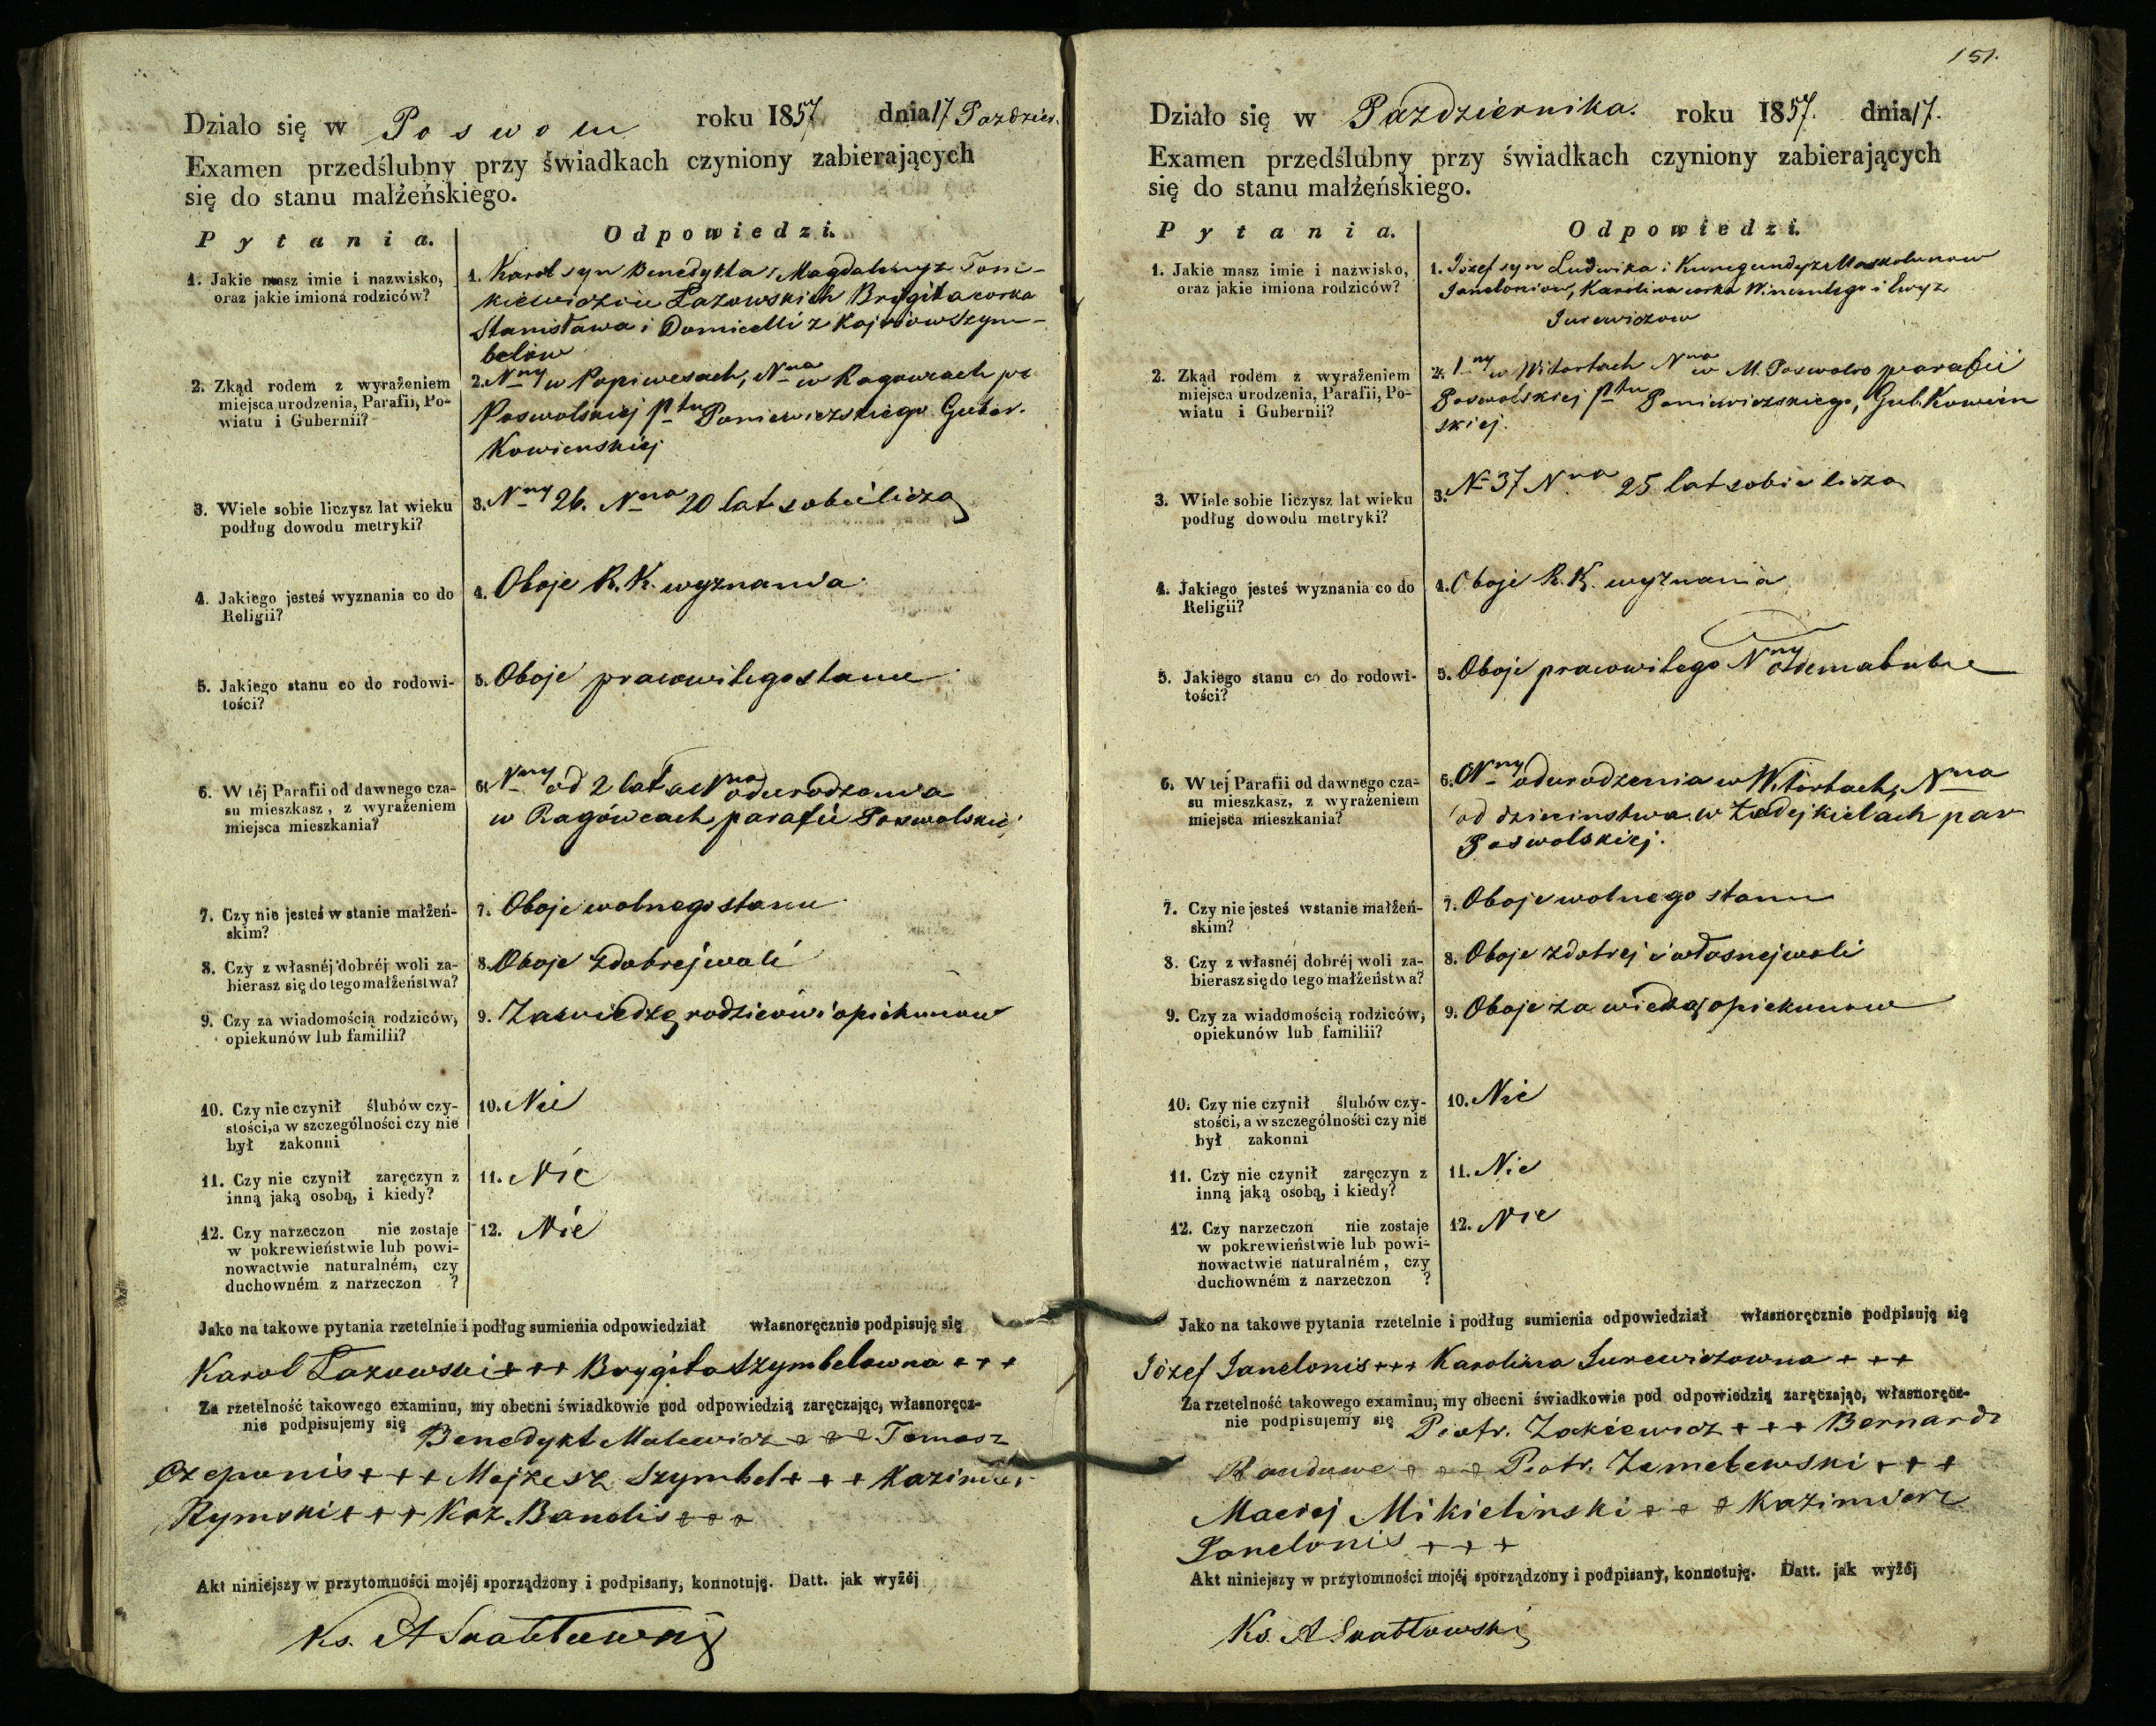 Działo się w Poswolu roku 1857 dnia 17 Paździer.
Examen przedślubny przy świadkach czyniony zabierających
się do stanu małżeńskiego.
Pytania. Odpowiedzi.
1. Jakie masz imie i nazwisko,
oraz jakie imiona rodziców?
1. Karol syn Benedykta i Magdaleny z Tom-
kiewiczów Łazowskich Brygita corka
Stanisława i Domicelli z Szym-
belów
2. Zkąd rodem z wyrażeniem
miejsca urodzenia, Parafii, Po-
wiatu i Gubernii?
2. Nny w Popiwesach, Nna w Ragowcach par
Poswolskiej ptu Poniewiezskiego Guber.
Kowienskiej
3. Wiele sobie liczysz lat wieku
podług dowodu metryki?
3. Nny 26. Nna 20 lat sobie liczą
4. Jakiego jesteś wyznania co do
Religii?
4. Oboje R. K. wyznania
5. Jakiego stanu co do rodowi-
tości?
5. Oboje pracowitego stanu
6. W téj Parafii od dawnego cza-
su mieszkasz, z wyrażeniem
miejsca mieszkania?
6. Nny od 2 lat a Nna od urodzenia
w Ragówcach parafii Poswolskiej
7. Czy nie jesteś w stanie małżeń-
skim?
7. Oboje wolnego stanu
8. Czy z własnéj dobréj woli za-
bierasz się do tego małżeństwa?
8. Oboje z dobrej woli
9. Czy za wiadomością rodziców,
opiekunów lub familii?
9. Za wiedzą rodziców i opiekunow
10. Czy nie czynił ślubów czy-
stości, a w szczególności czy nie
był zakonni
10. Nie
11. Czy nie czynił zaręczyn z
inną jaką osobą, i kiedy?
11. Nie
12. Czy narzeczon nie zostaje
w pokrewieństwie lub powi-
nowactwie naturalném, czy
duchowném z narzeczon ?
12. Nie
Jako na takowe pytania rzetelnie i podług sumienia odpowiedział własnoręcznie podpisuję się
Karol Łazowski +++ Brygita Szymbelowna +++
Za rzetelność takowego examinu, my obecni świadkowie pod odpowiedzią zaręczając, własnoręcz-
nie podpisujemy się Benedykt Malewicz +++ Tomasz
Czeponis +++ Mojżesz Szymbel +++ Kazimier
Rymski +++ Kaz. Banelis +++
Akt niniejszy w przytomności mojéj sporządzony i podpisany, konnotuję. Datt. jak wyżéj
Ks. A
151.
Działo się w Pazdziernika. roku 1857. dnia 17.
Examen przedślubny przy świadkach czyniony zabierających
się do stanu małżeńskiego.
Pytania. Odpowiedzi.
1. Jakie masz imie i nazwisko,
oraz jakie imiona rodziców?
1. Józef syn Ludwika i Kunegundy z Maskolunow
Janeloniow, Karolina corka Wincentego i Ewy z
Jurewiczow
2. Zkąd rodem z wyrażeniem
miejsca urodzenia, Parafii, Po-
wiatu i Gubernii?
2. Nny w Witartach Nna w M. Poswolu parafii
Poswolskiej ptu Poniewiezskiego, Gub. Kowien
skiej.
3. Wiele sobie liczysz lat wieku
podług dowodu metryki?
3. N 37 Nna 25 lat sobie liczą
4. Jakiego jesteś wyznania co do
Religii?
4. Oboje R. K. wyznania
5. Jakiego stanu co do rodowi-
tości?
5. Oboje pracowitego Nny
6. W tej Parafii od dawnego cza-
su mieszkasz, z wyrażeniem
miejsca mieszkania?
6. Nny od urodzenia w Witortach, Nna
od dzieinstwa w Zadejkielach par
Poswolskiej.
7. Czy nie jesteś wstanie małżeń-
skim?
7. Oboje wolnego stanu
8. Czy z własnéj dobréj woli za-
bierasz się do tego małżeństwa?
8. Oboje z dobrej i własnej woli
9. Czy za wiadomością rodziców,
opiekunów lub familii?
9. Oboje za wiedzą opiekunow
10. Czy nie czynił ślubów czy-
stości, a w szczególności czy nie
był zakonni
10. Nie
11. Czy nie czynił zaręczyn z
inną jaką osobą, i kiedy?
11. Nie
12. Czy narzeczon nie zostaje
w pokrewieństwie lub powi-
nowactwie naturalném, czy
duchowném z narzeczon ?
12. Nie
Jako na takowe pytania rzetelnie i podług sumienia odpowiedział własnoręcznie podpisuję się
Józef Janelonis +++ Karolina Jurewiczowna +++
Za rzetelność takowego examinu, my obecni świadkowie pod odpowiedzią zaręczając, własnoręcz-
nie podpisujemy się Piotr. Zakiewicz +++ Bernard
+++ Piotr. Zemelewski +++
Maciej Mikielinski +++ Kazimierz
Janelonis +++
Akt niniejszy w przytomności mojéj sporządzony i podpisany, konnotuję. Datt. jak wyżéj
Ks. A